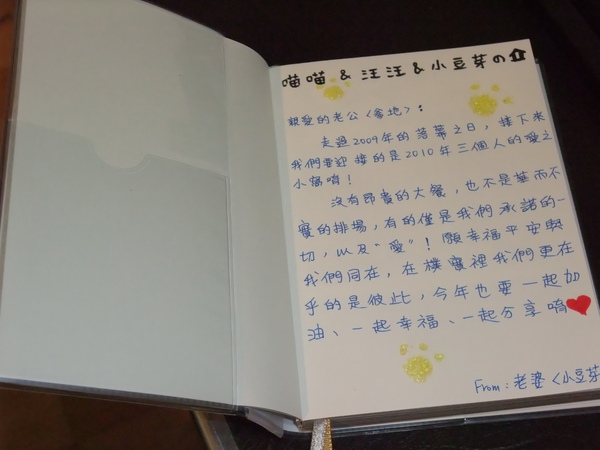 喵喵 & 汪汪 & 小豆芽の
親愛的老公〈爸地〉:
走過2009年的落幕之日，接下來
我們要迎接的是2010年三個人的愛之
小窩唷！
沒有昂貴的大餐，也不是華而不
實的排場，有的僅是我們承諾的一
切，以及"愛"！願幸福平安與
我們同在，在樸實裡我們更在
乎的是彼此，今年也要一起加
油、一起幸福、一起分享唷
From：老婆〈小豆芽